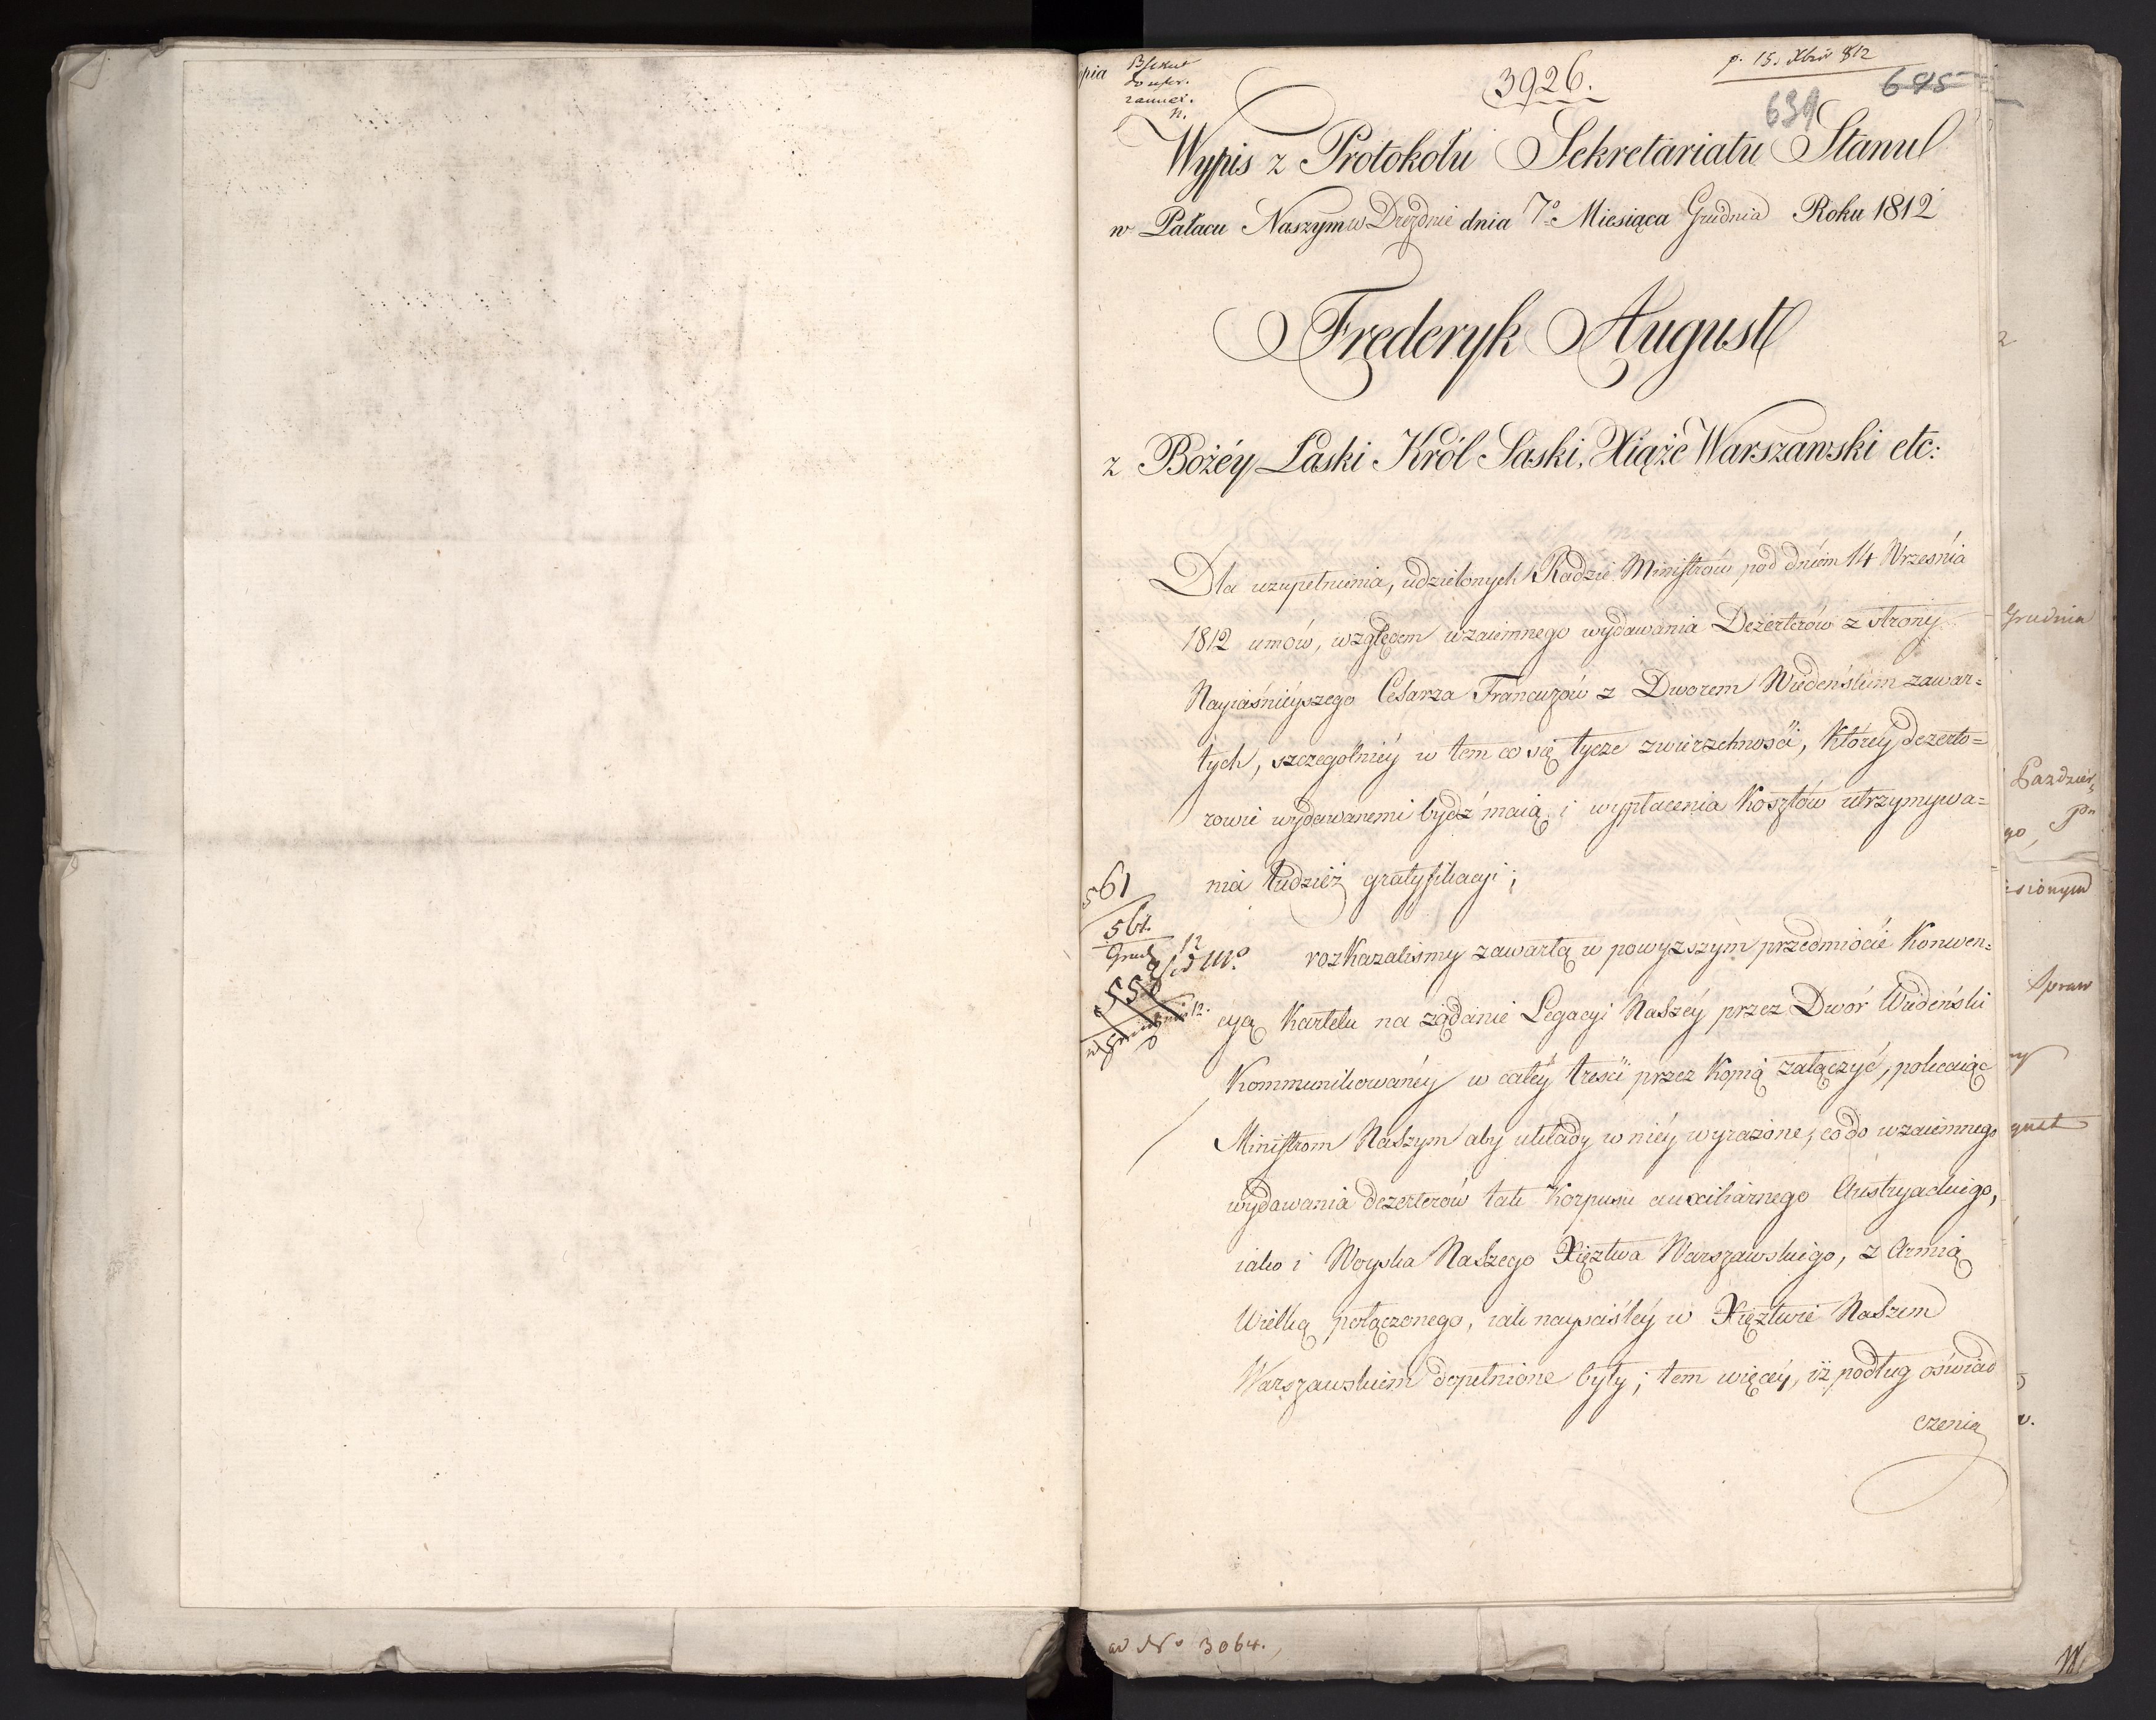 3926.
p. 15. Xbra 812
695
639
Wypis z Protokołu Sekretariatu Stanu
w Pałacu Naszym w Dreźdnie dnia 7º Miesiąca Grudnia Roku 1812
Frederyk August
z Bożéy Łaski Król Saski, Xiąże Warszawski etc:
Dla uzupełnienia, udzielonych Radzie Ministrów pod dniem 14 Września
1812 umów, względem wzaiemnego wydawania Dezerterów z strony
Nayiaśnieyszego Cesarza Francuzów z Dworem Wiedeńskim zawar=
tych, szczególniéy w tem co się tycze zwierzchności, któréy dezerto=
rowie wydawanemi bydź maią, i wypłacenia kosztów utrzymywa=
nia tudzież gratyfikacyi;
561
561.
Grud 12
rozkazaliśmy zawartą w powyższym przedmiocie Konwen=
cyą Kartelu na żądanie Legacyi Naszéy przez Dwór Wiedeński
Kommunikowanéy w całéy treści przez Kopią załączyć, polecaiąc
Ministrom Naszym aby układy w niéy wyrażone, co do wzaiemnego
wydawania dezerterów tak Korpusu auxiliarnego Austryackiego,
iako i Woyska Naszego Xięztwa Warszawskiego, z Armią
Wielką połączonego, iak nayściśléy w Xięztwie Naszem
Warszawskiem dopełnione były; tem więcéy, iż podług oświad
czenia
Grudnia
Pazdzier
go,
sionym
Spraw
gust
ad Nº 3064.